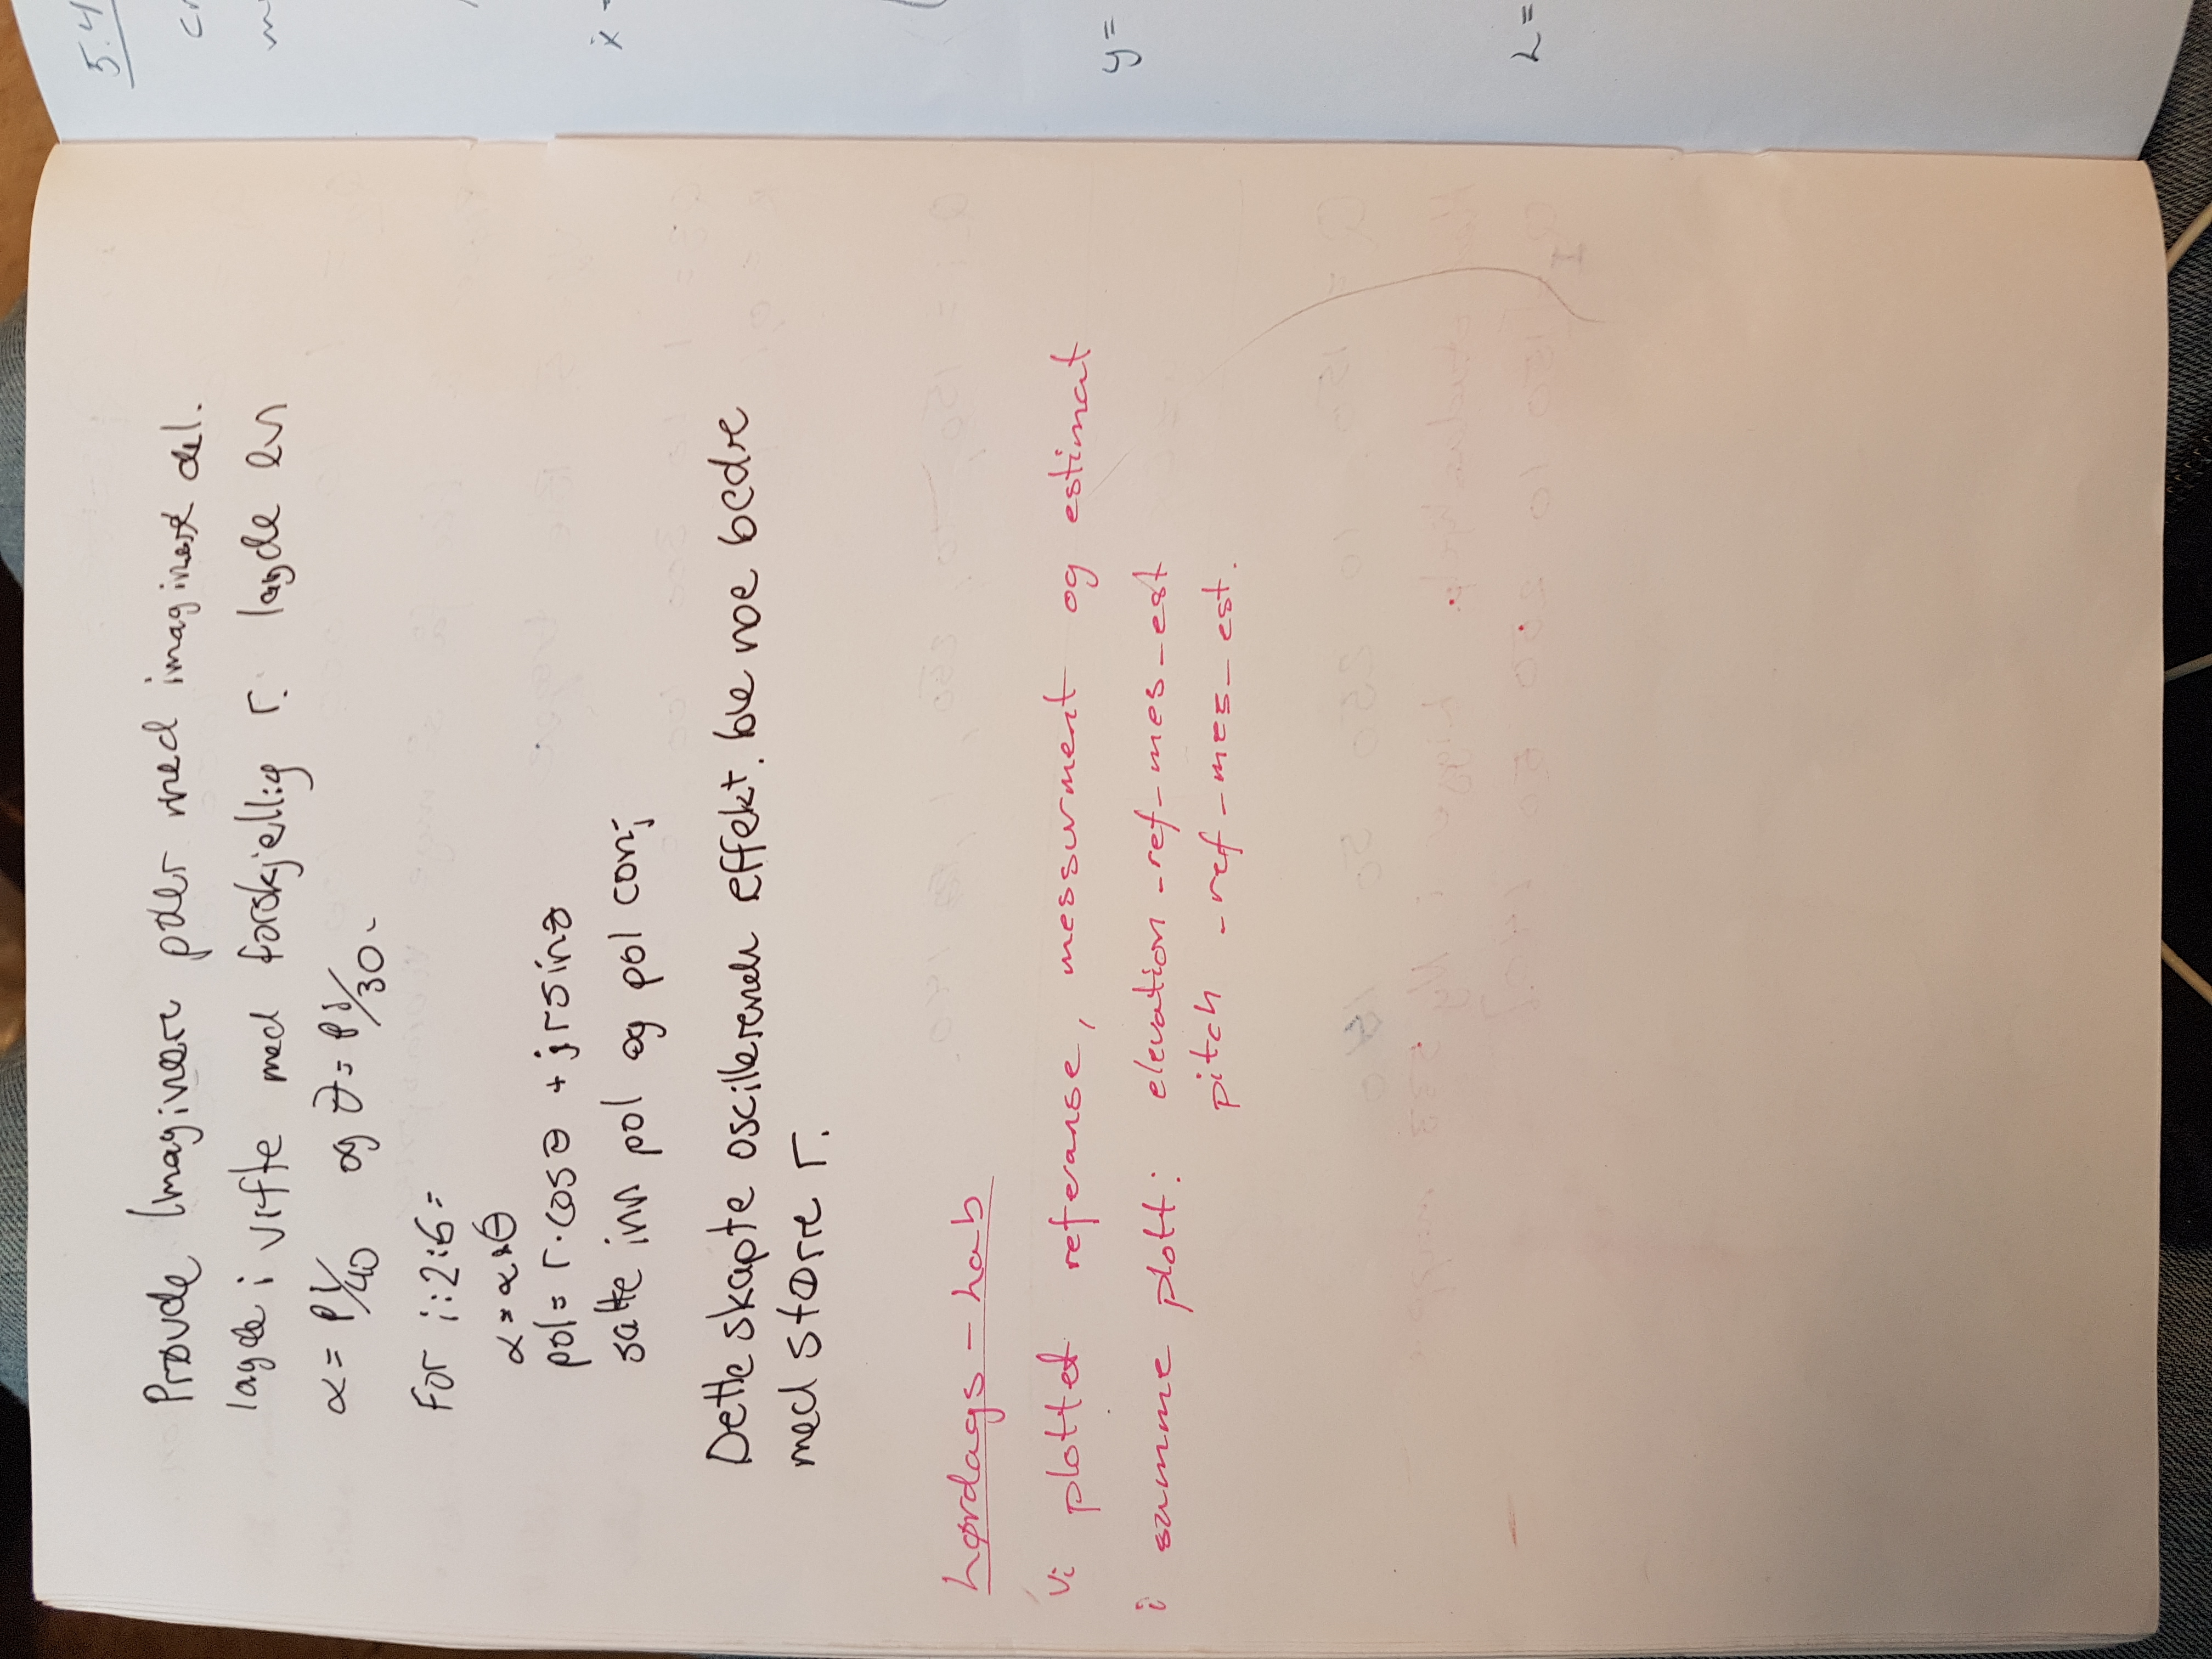 Prøvde Imaginære poler med imaginært del.
lagde i vifte med forskjellig r. lagde en
α = Pi/40 og θ = Pi/30.
For i:2:6=
α = α+θ
pol = r·cosθ + jrsinθ
satte inn pol og pol conj
Dette skapte oscillerende effekt. ble noe bedre
med større r.
Lørdags - Lab
Vi plottet referanse, messurment og estimat
i samme plott: elevation_ref_mes_est
pitch _ref_mes_est.
5.4
ẋ
y =
L =